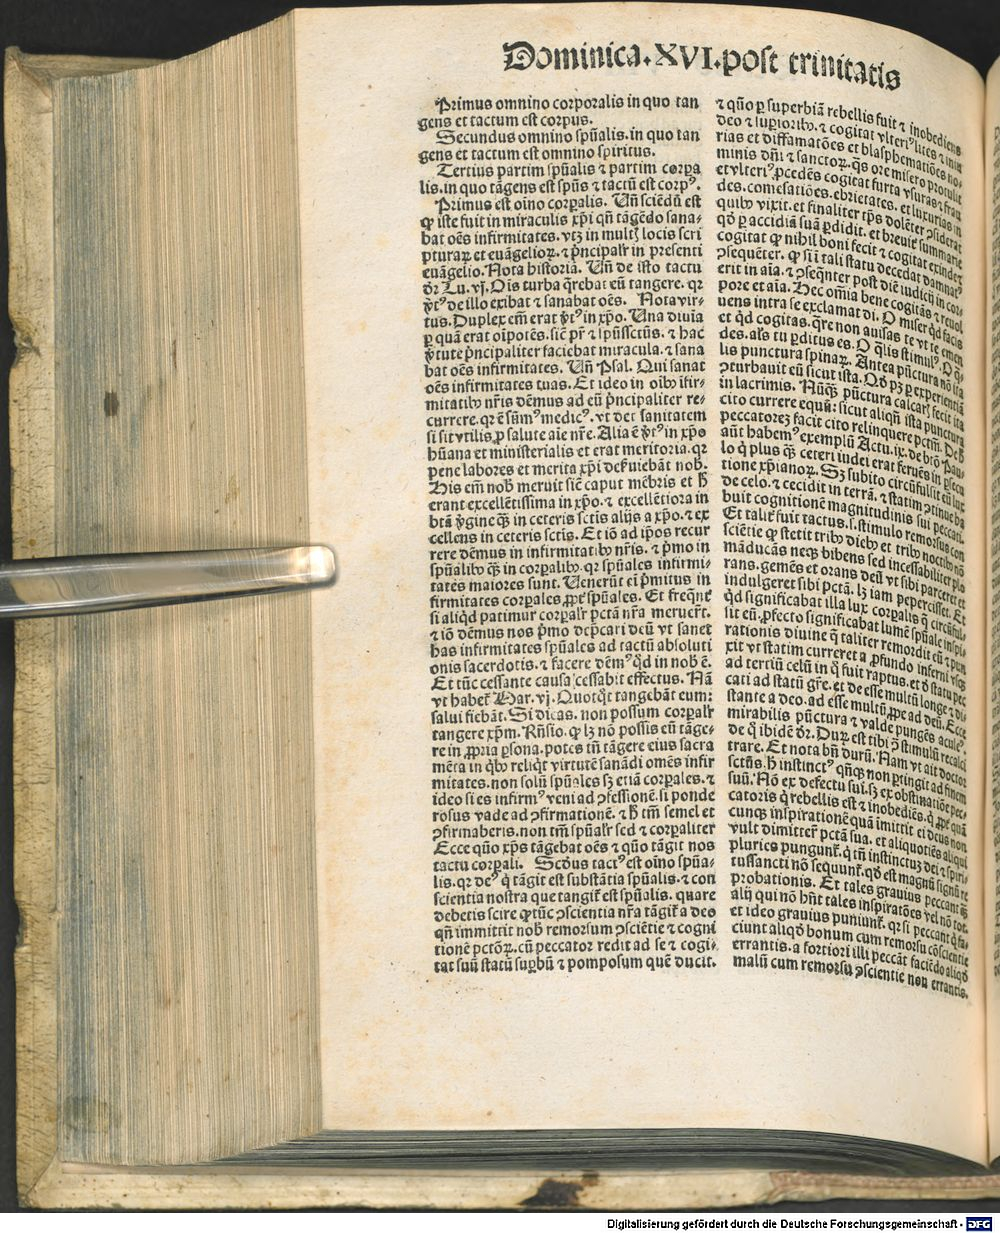 Dominica.XVI.post trinitatis
Primus omnino corporalis in quo tan
gens et tactum est corpus.
Secundus omnino spũalis.in quo tan
gens et tactum est omnino spiritus.
Tertius partim spũalis ⁊ partim corpa
lis.in quo tãgens est spũs ⁊ tactũ est corpꝰ.
Primus est oĩno corꝑalis. Uñ sciẽdũ est
ꝙ iste fuit in miraculis xp̃i qñ tãgẽdo sana⸗
bat oẽs infirmitates. vtꝫ in multꝭ locis scri
pturaꝝ et euãgelioꝝ. ⁊ p̃ncipalr̃ in presenti
euãgelio. Nota historiã. Uñ de isto tactu
dr̃ Lu. vj. Ois turba q̃rebat eũ tangere. qꝛ
ꝟ̃tꝰ de illo exibat ⁊ sanabat oẽs. Nota vir⸗
tus. Duplex em̃ erat ꝟ̃tꝰ in xp̃o. Una diuĩa
ꝑ quã erat oĩpotẽs. sic̃ pr̃ ⁊ spũssctũs. ⁊ hac
ꝟ̃tute p̃ncipaliter faciebat miracula. ⁊ sana
bat oẽs infirmitates. Uñ Psal. Qui sanat
oẽs infirmitates tuas. Et ideo in oĩbꝰ ĩfir⸗
mitatibꝰ nr̃is dẽmus ad eũ p̃ncipaliter re⸗
currere. qꝛ ẽ sũmꝰ medicꝰ. vt det sanitatem
si sit vtilis ꝓ salute aĩe nr̃e. Alia ẽ ꝟ̃tꝰ in xp̃o
hũana et ministerialis et erat meritoria. qꝛ
pene labores et merita xp̃i deẽuiebãt nob̃.
His em̃ nob̃ meruit sic̃ caput mẽbris et h̃
erant excellẽtissima in xp̃o. ⁊ excellẽtiora in
btã ꝟ̃gine qꝫ in ceteris sctis alijs a xp̃o. ⁊ ex
cellens in ceteris sctis. Et iõ ad ip̃os recur
rere dẽmus in infirmitatibꝰ nr̃is. ⁊ p̃mo in
spũalibꝰ qꝫ in corꝑalibꝰ. qꝛ spũales infirmi⸗
tates maiores sunt. Uenerũt ei p̃mitus in
firmitates corꝑales ꝓpt̃ spũales. Et freq̃nt̃
si aliqd patimur corꝑalr̃ pctã nr̃a meruer̃t.
⁊ iõ dẽmus nos p̃mo dep̃cari deũ vt sanet
has infirmitates spũales ad tactũ absoluti
onis sacerdotis. ⁊ facere dẽmꝰ q̃d in nob̃ ẽ.
Et tũc cessante causa cessabit effectus. Nã
vt habet̃ Mar. vj. Quotq̃t tangebãt eum:
salui fiebãt. Si dicas. non possum corꝑalr̃
tangere xp̃m. Rñsio. ꝙ lꝫ nõ possis eũ tãge⸗
re in ꝓpria ꝑsona. potes tñ tãgere eius sacra
mẽta in qͥbꝰ reliq̃t virtutẽ sanãdi omẽs infir
mitates. non solũ spũales sꝫ etiã corꝑales. ⁊
ideo si es infirmꝰ veni ad ↄfessionẽ. si ponde
rosus vade ad ↄfirmationẽ. ⁊ h̃ tm̃ semel et
ↄfirmaberis. non tm̃ spũalr̃ sed ⁊ corꝑaliter
Ecce quõ xp̃s tãgebat oẽs ⁊ quõ tãgit nos
tactu corꝑali. Scd̃us tactꝰ est oĩno spũa⸗
lis. qꝛ deꝰ q̃ tãgit est substãtia spũalis. ⁊ con
scientia nostra que tangit̃ est spũalis. quare
debetis scire ꝙ tũc ↄscientia nr̃a tãgit̃ a deo
qñ immittit nob̃ remorsum ↄsciẽtie ⁊ cogni
tionẽ pctõꝝ. cũ peccator redit ad se ⁊ cogi⸗
tat suũ statũ suꝑbũ ⁊ pomposum quẽ ducit.
⁊ quõ ꝑ superbiã rebellis fuit ⁊ inobediens
deo ⁊ suꝑioribꝰ. ⁊ cogitat vlteriꝰ lites ⁊ iniu
rias et diffamatões et blasphematiões no⸗
minis dñi ⁊ sanctoꝝ. q̃s ore misero protulit
et vlteriꝰ ꝓcedẽs cogitat furta vsuras ⁊ frau
des. comesatiões. ebrietates. et luxurias in
quibꝰ vixit. et finaliter tp̃s dolẽter ↄsiderat
qd̃ ꝑ accidiã suã ꝑdidit. et breuit̃ summarie
cogitat ꝙ nihil boni fecit ⁊ cogitat exindeꝫ
ↄsequẽter. ꝙ si ĩ tali statu decedat damnatꝰ
erit in aĩa. ⁊ ↄseq̃nter post diẽ iudicij in cor⸗
pore et aĩa. Hec om̃ia bene cogitãs ⁊ reuol
uens intra se exclamat di. O miser qd̃ facis
et qd̃ cogitas. q̃re non ausas te vt te emen
des. als̃ tu ꝑditus es. O q̃lis stimulꝰ. O q̃⸗
lis punctura spinaꝝ. Antea pũctura nõ ita
ↄturbauit eũ sicut ista. Qd̃ pꝫ ꝑ experientiã
in lacrimis. Nũqꝫ pũctura calcarꝭ fecit ita
cito currere equũ: sicut aliqñ ista punctura
peccatoreꝫ facit cito relinquere pctm̃. De h̃
aũt habemꝰ exemplũ Actu. ix. de btõ Pau⸗
lo q̃ plus qꝫ ceteri iudei erat feruẽs in ꝑsecu
tione xp̃ianoꝝ. Sꝫ subito circũfulsit eũ lux
de celo. ⁊ cecidit in terrã. ⁊ statim ↄtinue ha
buit cognitionẽ magnitudinis sui peccati.
Et talit̃ fuit tactus. s. stimulo remorsus con
sciẽtie ꝙ stetit tribꝰ diebꝰ et tribꝰ noctibꝰ nõ
mãducãs neqꝫ bibens sed incessabiliter plo
rans. gemẽs et orans deũ vt sibi parceret et
indulgeret sibi pctã. lꝫ iam pepercisset. Et
q̃d significabat illa lux corꝑalis q̃ circũful⸗
sit eũ. ꝓfecto significabat lumẽ spũale inspi⸗
rationis diuine q̃ taliter remordit eũ ⁊ pun
xit vt statim curreret a ꝓfundo inferni vsqꝫ
ad tertiũ celũ in q̃ fuit raptus. et d̃ statu pec
cati ad statũ gr̃e. et de esse multũ longe ⁊ di⸗
stante a deo. ad esse multũ ꝓpe ad deũ. Ecce
mirabilis pũctura ⁊ valde pungẽs aculeꝰ.
de q̃ ibidẽ dr̃. Duꝝ est tibi ↄ̃ stimulũ recalci
trare. Et nota bñ durũ. Nam vt ait doctor
sctũs. h̃ instinctꝰ qñqꝫ non ꝑtingit ad finem
suũ. Nõ ex defectu sui. sꝫ ex obstinatiõe pec⸗
catoris q̃ rebellis est ⁊ inobediẽs. q̃ ꝓpt̃ quã
cunqꝫ inspirationẽ quã immittit ei deus non
vult dimittere pctã sua. et aliquotiẽs aliqui
pluries pungunt̃. q̃ tñ instinctuꝫ dei ⁊ spiri⸗
tussancti nõ sequunt̃. qd̃ est magnũ signũ re
ꝓbationis. Et tales grauius peccant qꝫ
alij qui nõ hñt tales inspiratões vel nõ tot.
et ideo grauius puniunt̃. qꝛ si peccant q̃ fa⸗
ciunt aliqd̃ bonum cum remorsu cõscientie
errantis. a fortiori illi peccãt faciẽdo aliqd̃
malũ cum remorsu ↄscientie non errantis.
Digitalisierung gefördert durch die Deutsche Forschungsgemeinschaft - DFG